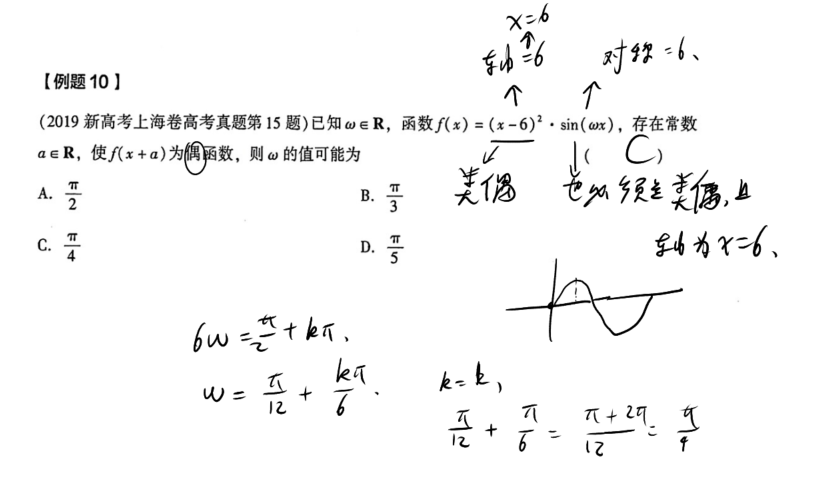 x=6
↑
车由=6
对称=6、
↑ ↑
【例题10】
(2019 新高考上海卷高考真题第 15 题)已知 ω∈R，函数 f(x)=(x-6)²·sin(ωx)，存在常数
a∈R，使 f(x+a)为偶函数，则 ω 的值可能为 ( C )
A. π/2
B. π/3
C. π/4
D. π/5
类偶
也必须是类偶，且
轴为 x=6、
6ω=π/2+kπ、
ω=π/12+kπ/6.
k=k,
π/12+π/6=π+2π/12=π/4